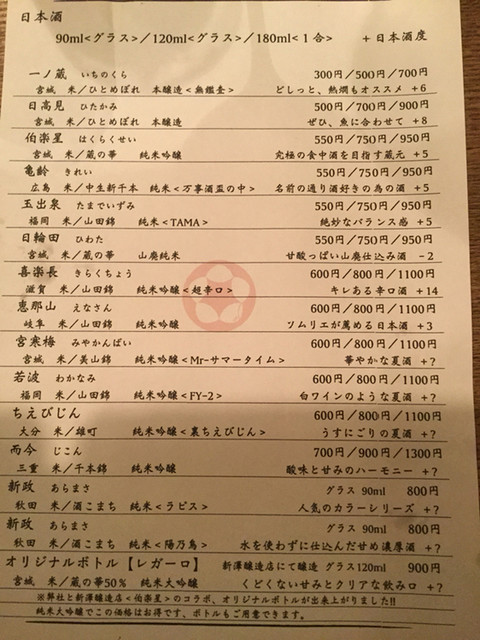 日本酒
90ml<グラス>／120ml<グラス>／180ml<1合>　＋日本酒度
一ノ蔵　いちのくら　300円／500円／700円
宮城　米／ひとめぼれ　本醸造<無鑑査>　どしっと、熱燗もオススメ　+6
日高見　ひたかみ　500円／700円／900円
宮城　米／ひとめぼれ　本醸造　ぜひ、魚に合わせて　+8
伯楽星　はくらくせい　550円／750円／950円
宮城　米／蔵の華　純米吟醸　究極の食中酒を目指す蔵元　+5
亀齢　きれい　550円／750円／950円
広島　米／中生新千本　純米<万事酒盃の中>　名前の通り酒好きの為の酒　+5
玉出泉　たまでいずみ　550円／750円／950円
福岡　米／山田錦　純米<TAMA>　絶妙なバランス感　+5
日輪田　ひわた　550円／750円／950円
宮城　米／蔵の華　山廃純米　甘酸っぱい山廃仕込み酒　-2
喜楽長　きらくちょう　600円／800円／1100円
滋賀　米／山田錦　純米吟醸<超辛口>　キレある辛口酒　+14
恵那山　えなさん　600円／800円／1100円
岐阜　米／山田錦　純米吟醸　ソムリエが薦める日本酒　+3
宮寒梅　みやかんばい　600円／800円／1100円
宮城　米／美山錦　純米吟醸<Mr-サマータイム>　華やかな夏酒　+?
若波　わかなみ　600円／800円／1100円
福岡　米／山田錦　純米吟醸<FY-2>　白ワインのような夏酒　+?
ちえびじん　600円／800円／1100円
大分　米／雄町　純米吟醸<裏ちえびじん>　うすにごりの夏酒　+?
而今　じこん　700円／900円／1300円
三重　米／千本錦　純米吟醸　酸味と甘みのハーモニー　+?
新政　あらまさ　グラス 90ml　800円
秋田　米／酒こまち　純米<ラピス>　人気のカラーシリーズ　+?
新政　あらまさ　グラス 90ml　800円
秋田　米／酒こまち　純米<陽乃鳥>　水を使わずに仕込んだ甘め濃厚酒　+?
オリジナルボトル【レガーロ】　新澤醸造店にて醸造　グラス120ml　900円
宮城　米／蔵の華50%　純米大吟醸　くどくない甘みとクリアな飲み口　+?
※弊社と新澤醸造店<伯楽星>のコラボ、オリジナルボトルが出来上がりました!!
純米大吟醸でこの価格はお得です、ボトルもご用意できます。